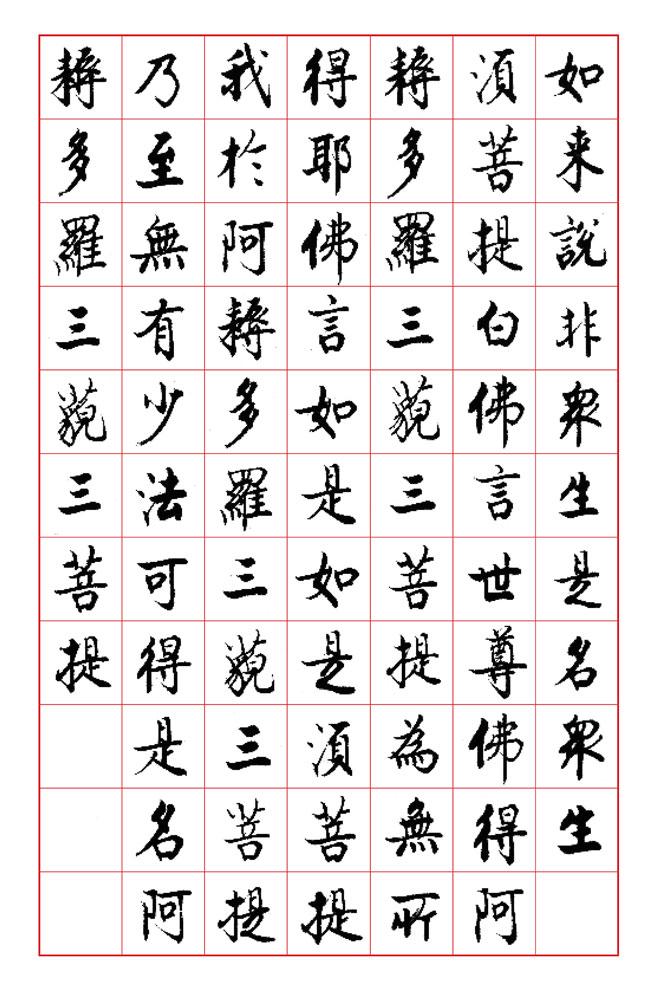 如来說非衆生是名衆生
須菩提白佛言世尊佛得阿
耨多羅三藐三菩提為無所
得耶佛言如是如是須菩提
我於阿耨多羅三藐三菩提
乃至無有少法可得是名阿
耨多羅三藐三菩提